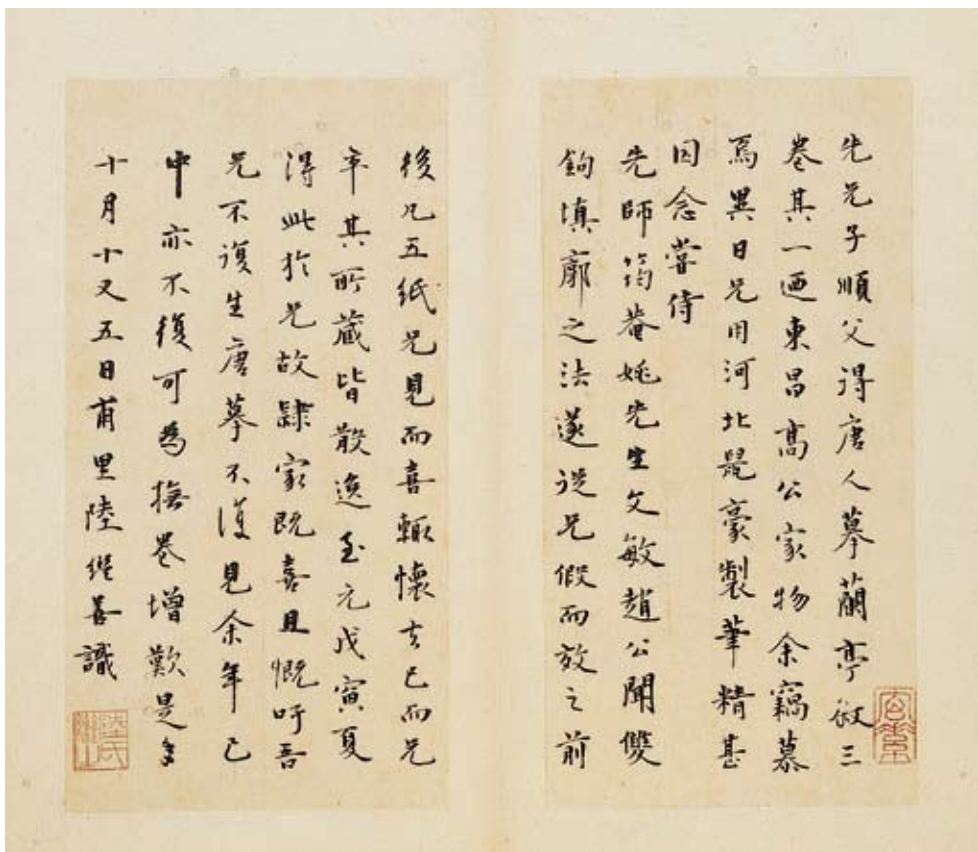 先兄子順父得唐人摹蘭亭敘三
卷其一迺東昌高公家物余竊慕
焉異日兄用河北鼠豪製筆精甚
因念嘗侍
先師筠菴姚先生文敏趙公聞雙
鉤填廓之法遂從兄假而放之前
後凡五紙兄見而喜輒懷去已而兄
卒其所藏皆散逸至元戊寅夏
得此於兄故隸家既喜且慨吁吾
兄不復生唐摹不復見余年已
中亦不復可為撫卷增歎是年
十月十又五日甫里陸繼善識